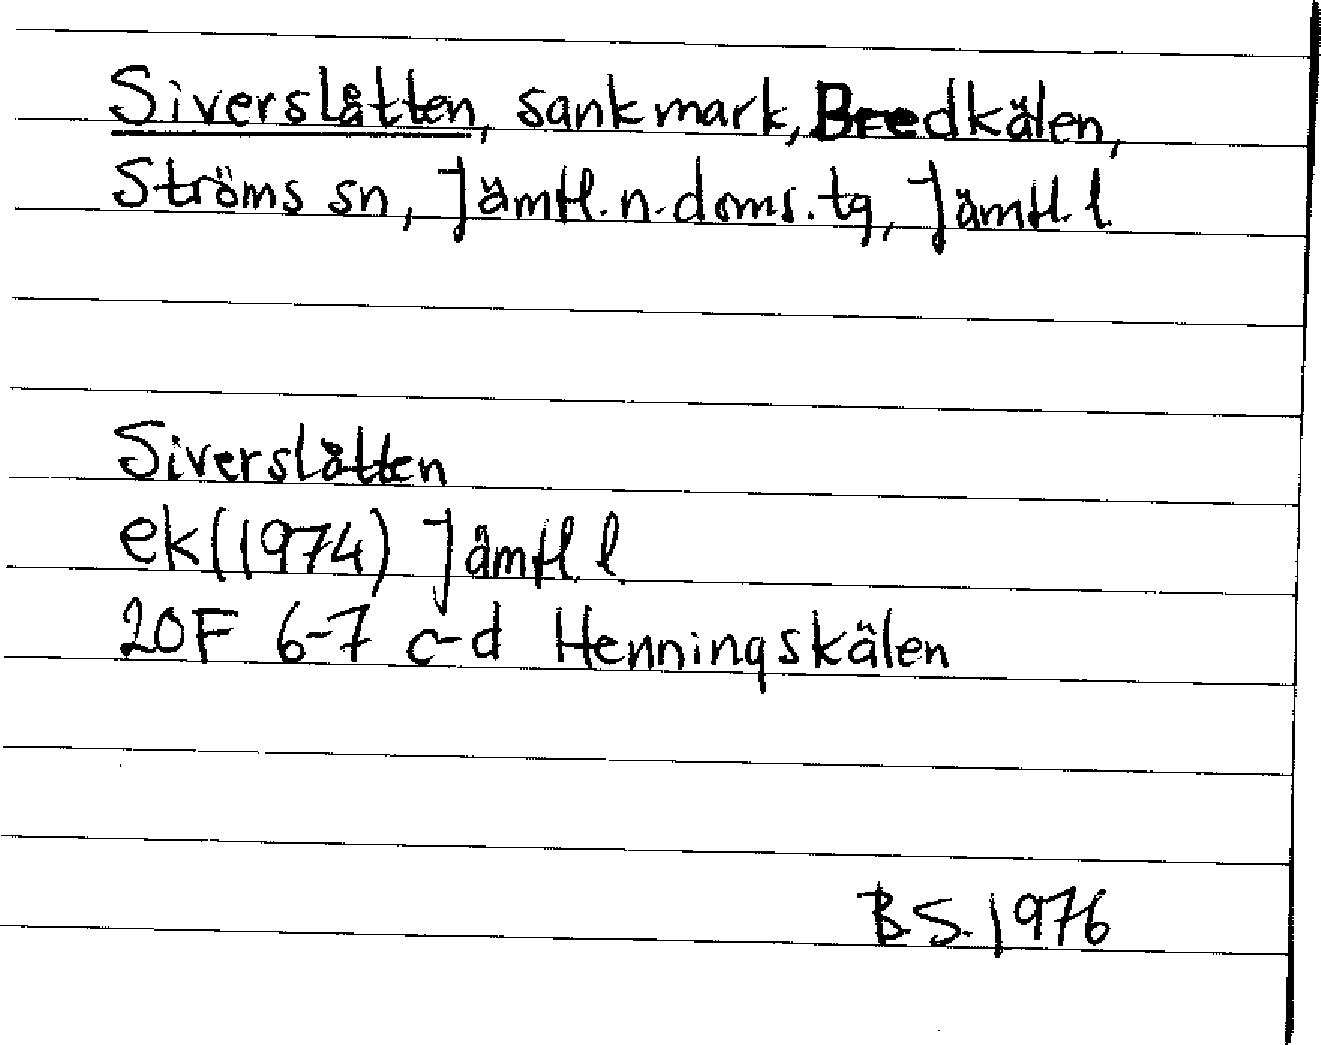 Siverslåtten, sankmark, Bredkälen,
Ströms sn, Jämtl.n.doms.tg, Jämtl.l
Siverslåtten
ek(1974) Jämtl.l
20F 6-7 c-d Henningskälen
B.S. 1976